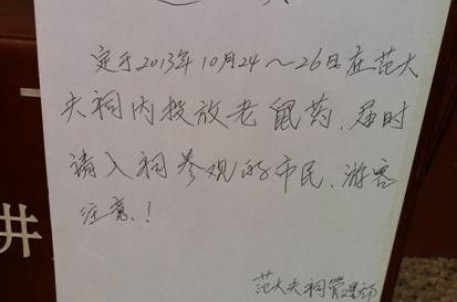 定于2013年10月24～26日在范大
夫祠内投放老鼠药，届时
请入祠参观的市民、游客
注意！
范大夫祠管理所
井